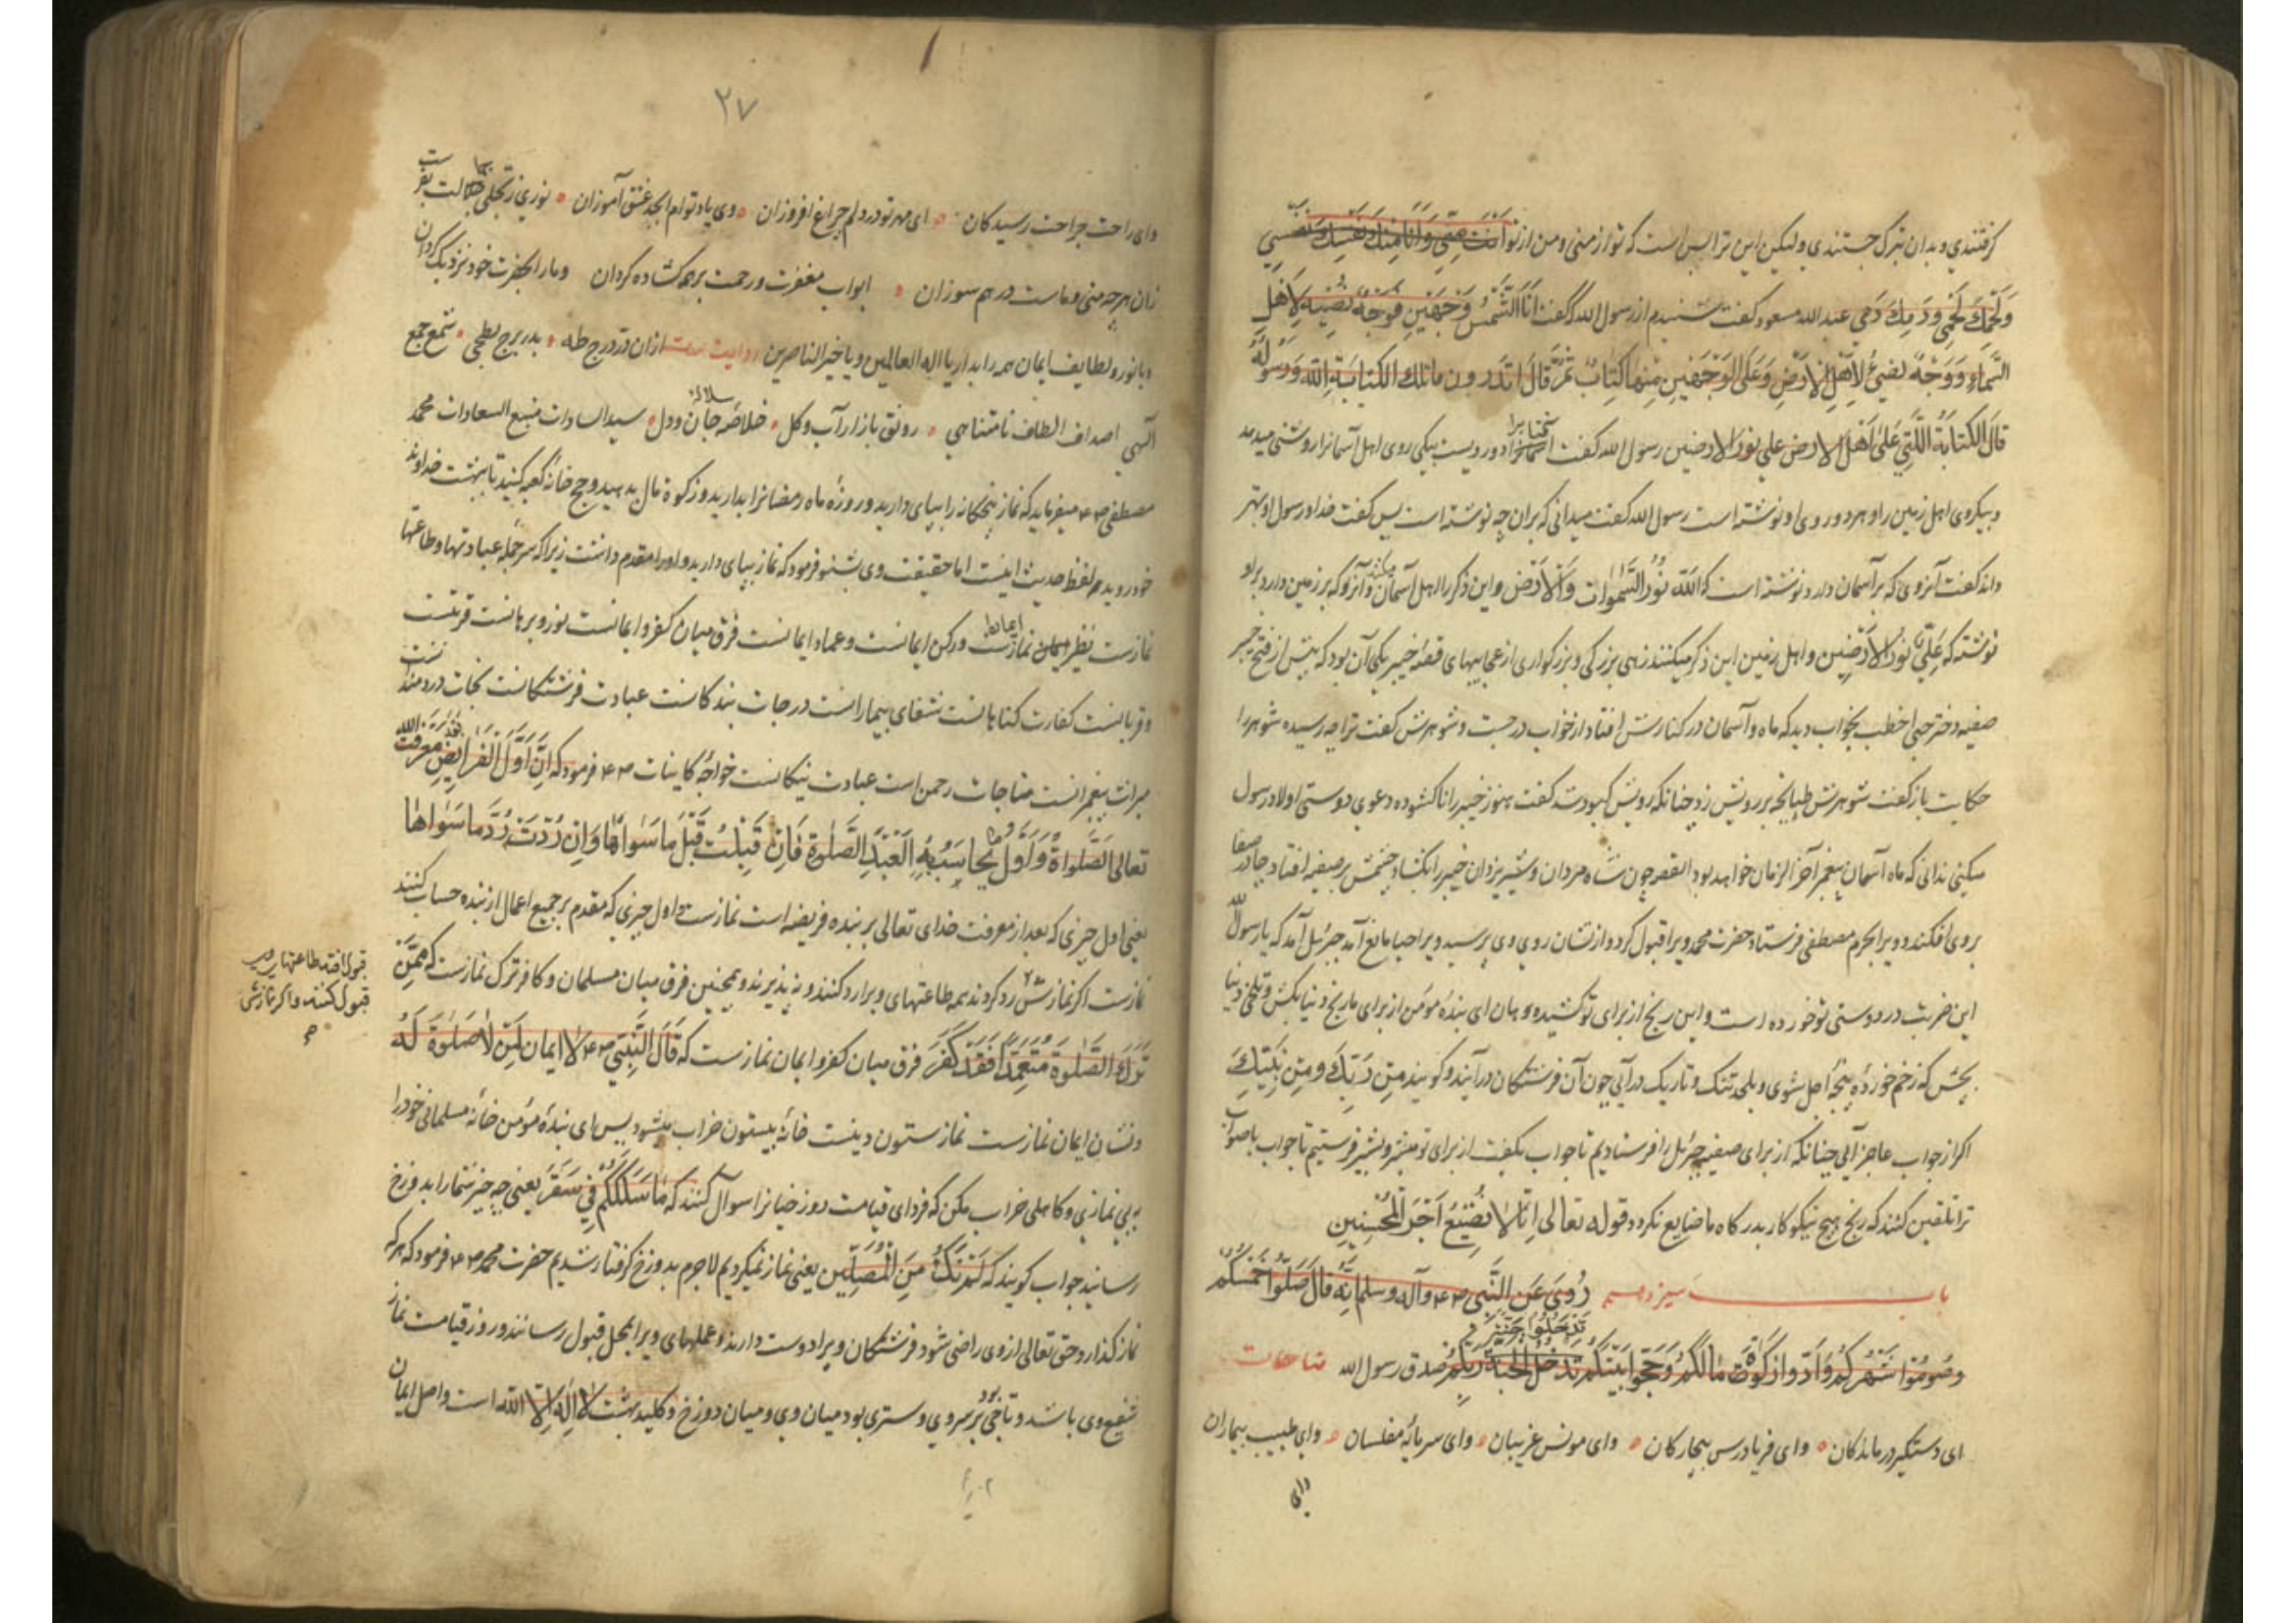 گرفتندی و بدان تبرک جستندی ولیکن این ترا بس است که تو از منی و من از تو انت منی وانا منک نفسک نفسی
ولحمک لحمی ودمک دمی عبد الله مسعود گفت شنیدم از رسول الله گفت ان للشمس وجهین فوجه یضیء لاهل
السماء ووجه یضیء لاهل الارض وعلی الوجهین منها کتاب ثم قال اتدرون ما تلک الکتابة الله ورسوله
قال الکتابة التی علی اهل الارض علی نور الارضین رسول الله گفت دو رویست بیکی روی اهل آسمانرا روشنی میدهد
و بیکروی اهل زمین را و هر دو روی او نوشته است رسول الله گفت میدانی که بران چه نوشته است پس گفت خدا و رسول او بهتر
داند گفت آنروی که بر آسمان دارد نوشته است که الله نور السموات والارض و این ذکر را اهل آسمان میکنند و آنرو که بر زمین دارد برو
نوشته که علی نور الارضین و اهل زمین این ذکر میکنند زهی بزرگی و بزرگواری از عجایبهای قصهٔ خیبر یکی آن بود که پیش از فتح خیبر
صفیه دختر حی اخطب بخواب دید که ماه و آسمان در کنارش افتاد از خواب درجست و شوهرش گفت ترا چه رسیده شوهر را
حکایت باز گفت شوهرش طپانچه بر رویش زد چنانکه رویش کبود شد گفت هنوز خیبر را ناکشوده دعوی دوستی اولاد رسول
میکنی ندانی که ماه آسمان پیغمبر آخر الزمان خواهد بود القصه چون شاه مردان و شیر یزدان خیبر را بکشاد چشمش بر صفیه افتاد چادر صفا
بروی افکند و ویرا بحرم مصطفی فرستاد حضرت محمد ویرا قبول کرد و از نشان روی وی پرسید ویرا حیا مانع آمد جبرئیل آمد که یا رسول الله
این ضربت در دوستی تو خورده است و این رنج از برای تو کشیده و هان ای بندهٔ مؤمن از برای ما رنج دنیا بکش و تلخی دنیا
بچش که زخم خوردهٔ پنجهٔ اجل شوی و بلحد تنک و تاریک درآیی چون آن فرشتکان درآیند و کویند من ربک ومن نبیک
اکر از جواب عاجز آیی چنانکه از برای صفیه جبرئیل را فرستادیم تا جواب بکفت از برای تو مبشر و بشیر فرستیم تا جواب با صواب
ترا تلقین کنند که رنج هیچ نیکوکار بدرکاه ما ضایع نکردد قوله تعالی انا لا نضیع اجر المحسنین
باب سیزدهم روی عن النبی ص ع م وآله وسلم انه قال صلوا خمسکم
وصوموا شهرکم وادوا زکوة مالکم وحجوا بیتکم تدخلوا جنة ربکم صدق رسول الله مناجات
ای دستکیر درماندکان وای فریادرس بیچارکان وای مونس غریبان وای سرمایهٔ مفلسان وای طبیب بیماران
وای
۲۷
وای راحت جراحت رسیدکان ای مهر تو در دلم چراغ افروزان وی یاد توام ابجد عشق آموزان نوری ز تجلی جمالت بفرست
زان هرچه منی و ماست درهم سوزان ابواب مغفرت و رحمت بر همه کشاده کردان وما را بحضرت خود نزدیک کردان
وبا نور و لطایف ایمان همه را بدار یا اله العالمین ویا خیر الناصرین روایت است ازان در درج طه بدر برج بطحی شمع جمع
الهی اصداف الطاف نامتناهی رونق بازار آب و کل خلاصهٔ جان و دل سید السادات منبع السعادات محمد
مصطفی ص ع م میفرماید که نماز پنجکانه را بپای دارید و روزهٔ ماه رمضانرا بدارید و زکوة مال بدهید و حج خانهٔ کعبه کنید تا ببهشت خداوند
خود روید لفظ حدیث اینست اما حقیقت وی بشنو فرمود که نماز بپای دارید و او را مقدم داشت زیرا که سرجملهٔ عبادتها و طاعتها
نمازست نظیر ایمان نمازست ورکن ایمانست وعماد ایمانست فرق میان کفر و ایمانست نور و برهانست قربتست
و قربانست کفارت کناهانست شفای بیمارانست درجات بندکانست عبادت فرشتکانست نجات دردمندانست
میراث پیغمبرانست مناجات رحمن است عبادت نیکانست خواجهٔ کاینات ص ع م فرمود که ان اول الفرایض بعد معرفة الله
تعالی الصلواة واول ما یحاسب به العبد الصلوة فان قبلت قبل ما سواها وان ردت رد ما سواها
یعنی اول چیزی که بعد از معرفت خدای تعالی بر بنده فریضه است نمازست و اول چیزی که مقدم بر جمیع اعمال از بنده حساب کنند
نمازست اکر نمازش رد کردند همه طاعتهای ویرا رد کنند و نپذیرند و همچنین فرق میان مسلمان و کافر ترک نمازست که من
ترک الصلوة متعمدا فقد کفر فرق میان کفر و ایمان نمازست که قال النبی ص ع م لا ایمان لمن لا صلوة له
و نشان ایمان نمازست نماز ستون دینست خانهٔ بیستون خراب میشود پس ای بندهٔ مؤمن خانهٔ مسلمانی خود را
به بی نمازی و کاهلی خراب مکن که فردای قیامت دوزخیانرا سوآل کنند که ما سلککم فی سقر یعنی چه چیز شما را بدوزخ
رسانید جواب کویند که لم نک من المصلین یعنی نماز نمیکردیم لاجرم بدوزخ کرفتار شدیم حضرت محمد ص ع م فرمود که هر که
نماز کذارد حق تعالی از وی راضی شود فرشتکان ویرا دوست دارند و عملهای ویرا بمحل قبول رسانند و روز قیامت نماز
شفیع وی باشد و تاجی بود بر سر وی و ستری بود میان وی و میان دوزخ و کلید بهشت لا اله الا الله است و اصل ایمان
قبول افتد طاعتهای وی
قبول کنند و اکر نمازش